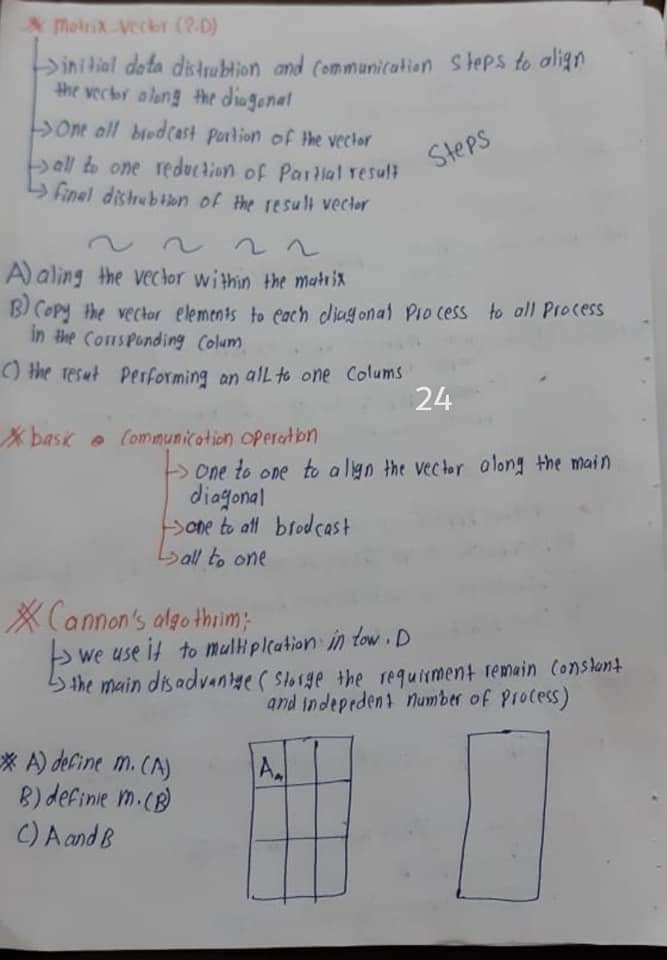 * Matrix-vector (2.D)
→ initial data distrubtion and Communication Steps to align
the vector along the diagonal
→ One all brodcast Portion of the vector
→ all to one reduction of Partial result
Steps
→ final distrubtion of the result vector
A) aling the vector within the matrix
B) Copy the vector elements to each diagonal Process to all Process
in the Corrsponding Colum
C) the resut Performing an all to one Colums
24
* basic Communication operation
→ one to one to align the vector along the main
diagonal
→ one to all brodcast
→ all to one
* Cannon's algothrim:-
→ we use it to multiplcation in tow.D
→ the main disadvantge (Storge the requirment remain Constant
and indepedent number of Process)
* A) define m.(A)
B) definie m.(B)
C) A and B
A